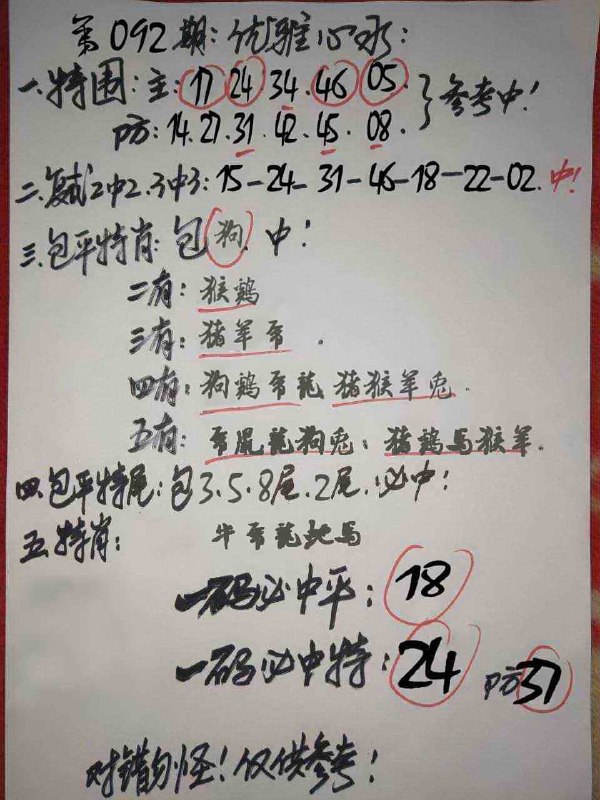 第092期:优雅心水:
一.特围:主:17.24.34.46.05.
防:14.27.31.42.45.08.
}参考中!
二.复式2中2.3中3:15-24-31-46-18-22-02.中!
三.包平特肖:包狗.中!
二有:猴鸡
三有:猪羊帝.
四有:狗鸡帝龍 猪猴羊兔.
五有:帝鼠龍狗兔:猪鸡马猴羊.
四.包平特尾:包3.5.8尾.2尾.必中!
五.特肖:牛帝龍虵马
一码必中平:18
一码必中特:24 防37
对错勿怪!仅供参考!